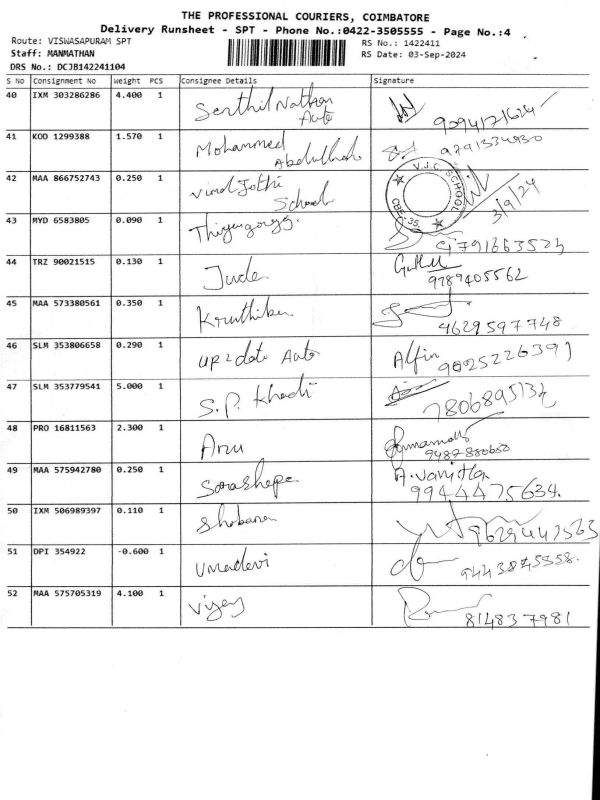 THE PROFESSIONAL COURIERS, COIMBATORE
Delivery Runsheet - SPT - Phone No.:0422-3505555 - Page No.:4
Route: VISWASAPURAM SPT
RS No.: 1422411
Staff: MANMATHAN
RS Date: 03-Sep-2024
DRS No.: DCJB142241104
S No Consignment No Weight PCS Consignee Details Signature
40 IXM 303286286 4.400 1 Senthil Nathan Auto
41 KOD 1299388 1.570 1 Mohammed Abdullah 9791334930
42 MAA 866752743 0.250 1 Jothi School V.J.C. SCHOOL CBE-35. 3/9/24
43 MYD 6583805 0.090 1
44 TRZ 90021515 0.130 1 Jude 9789405562
45 MAA 573380561 0.350 1 Kruthika 4629597748
46 SLM 353806658 0.290 1 UP 2 date Auto Alfin 9025226391
47 SLM 353779541 5.000 1 S.P. Khadi
48 PRO 16811563 2.300 1
49 MAA 575942780 0.250 1 A. Vanitha 9944475634.
50 IXM 506989397 0.110 1 Shobana 9629442563
51 DPI 354922 -0.600 1 Umadevi
52 MAA 575705319 4.100 1 Vijay 814837981